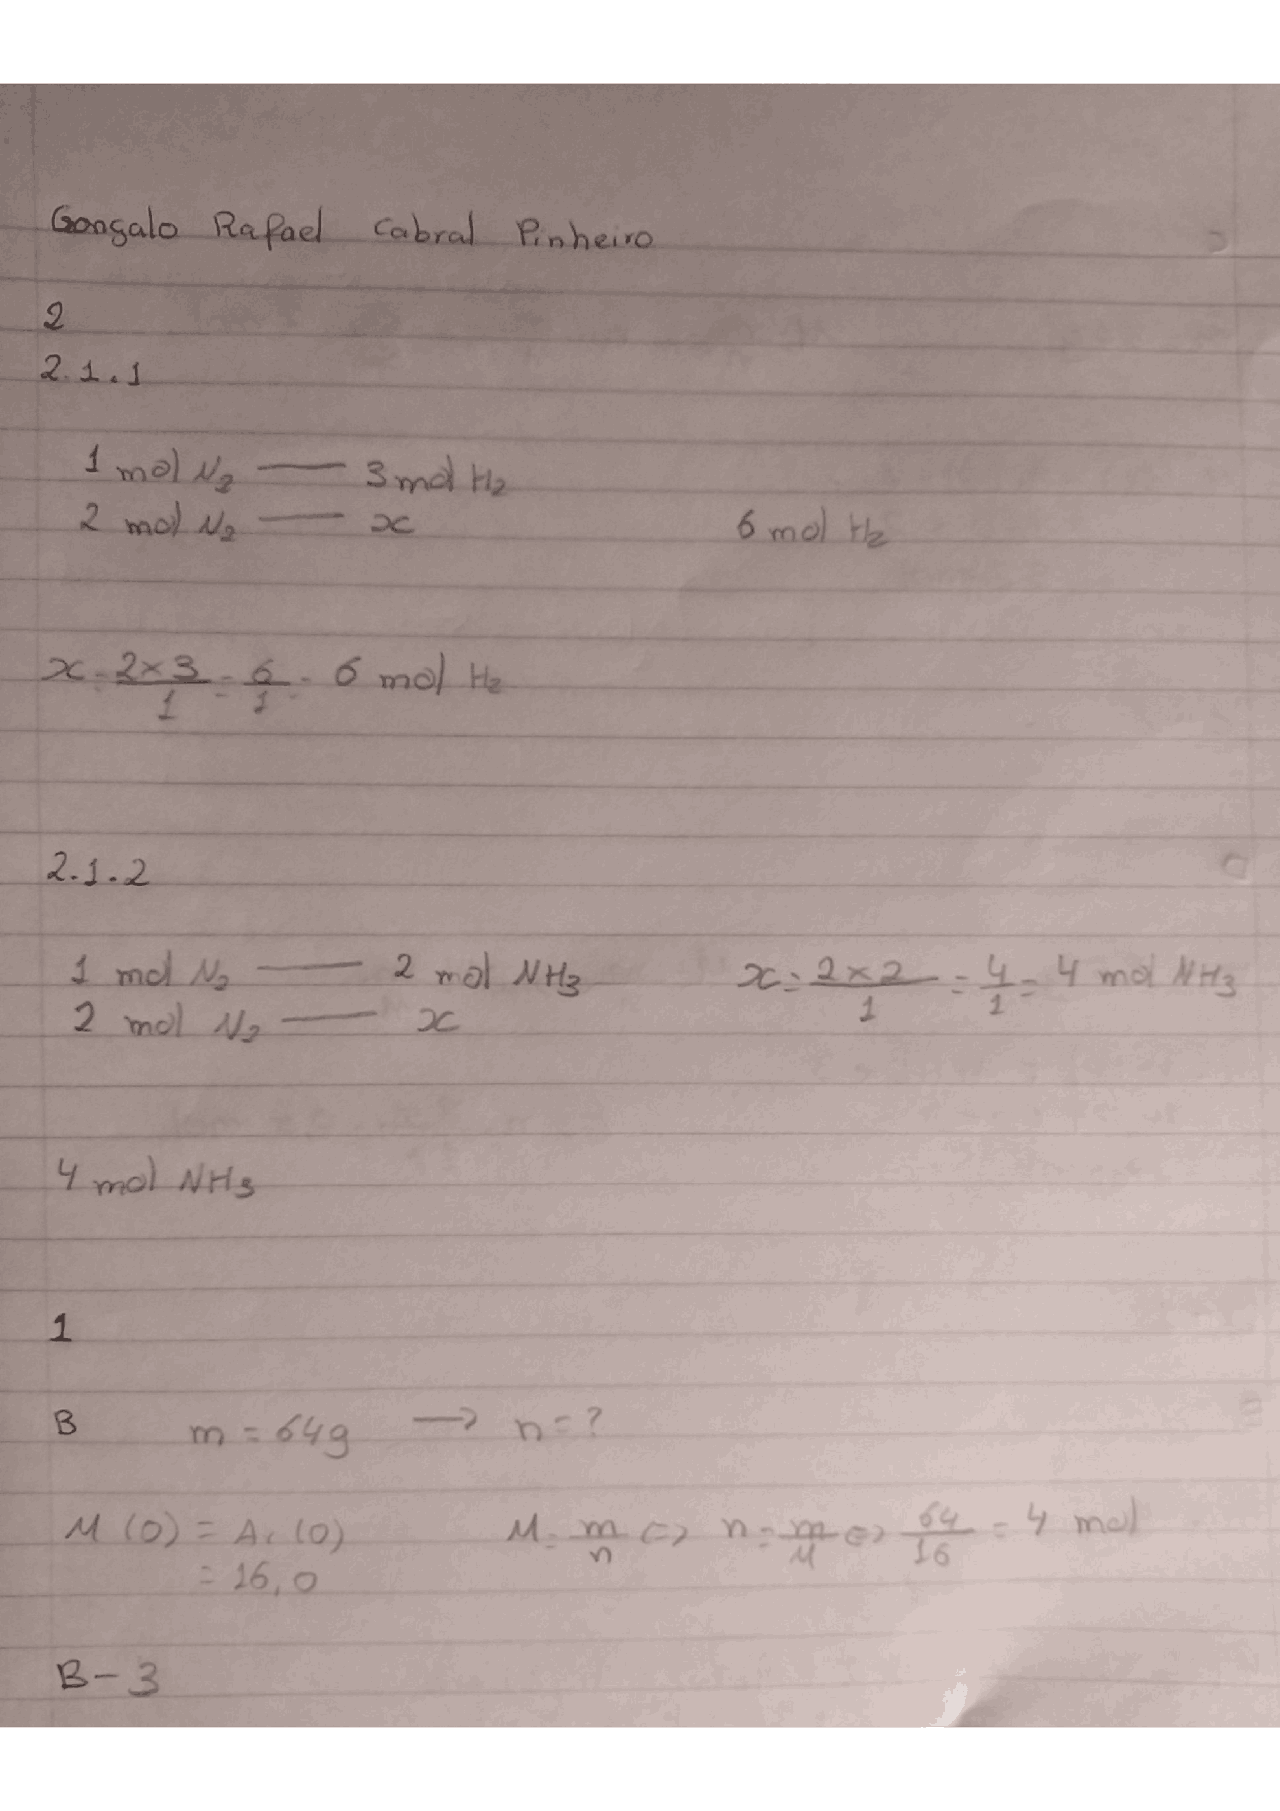 Gonçalo Rafael Cabral Pinheiro
2
2.1.1
1 mol N2 — 3 mol H2
2 mol N2 — x 6 mol H2
x = 2×3/1 = 6/1 = 6 mol H2
2.1.2
1 mol N2 — 2 mol NH3 x = 2×2/1 = 4/1 = 4 mol NH3
2 mol N2 — x
4 mol NH3
1
B m = 64g → n = ?
M (O) = Ar (O) M = m/n <=> n = m/M <=> 64/16 = 4 mol
= 16,0
B - 3